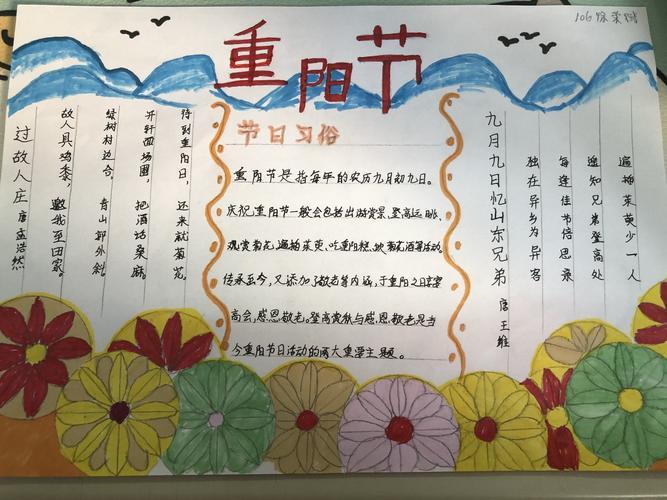 106
重阳节
过故人庄 唐 孟浩然
故人具鸡黍，邀我至田家。
绿树村边合，青山郭外斜。
开轩面场圃，把酒话桑麻。
待到重阳日，还来就菊花。
节日习俗
重阳节是指每年的农历九月初九日。
庆祝重阳节一般会包括出游赏景、登高远眺、
观赏菊花、遍插茱萸、吃重阳糕、饮菊花酒等活动。
传承至今，又添加了敬老等内涵，于重阳之日享宴
高会，感恩敬老。登高赏秋与感恩敬老是当
今重阳节日活动的两大重要主题。
九月九日忆山东兄弟 唐 王维
独在异乡为异客
每逢佳节倍思亲
遥知兄弟登高处
遍插茱萸少一人